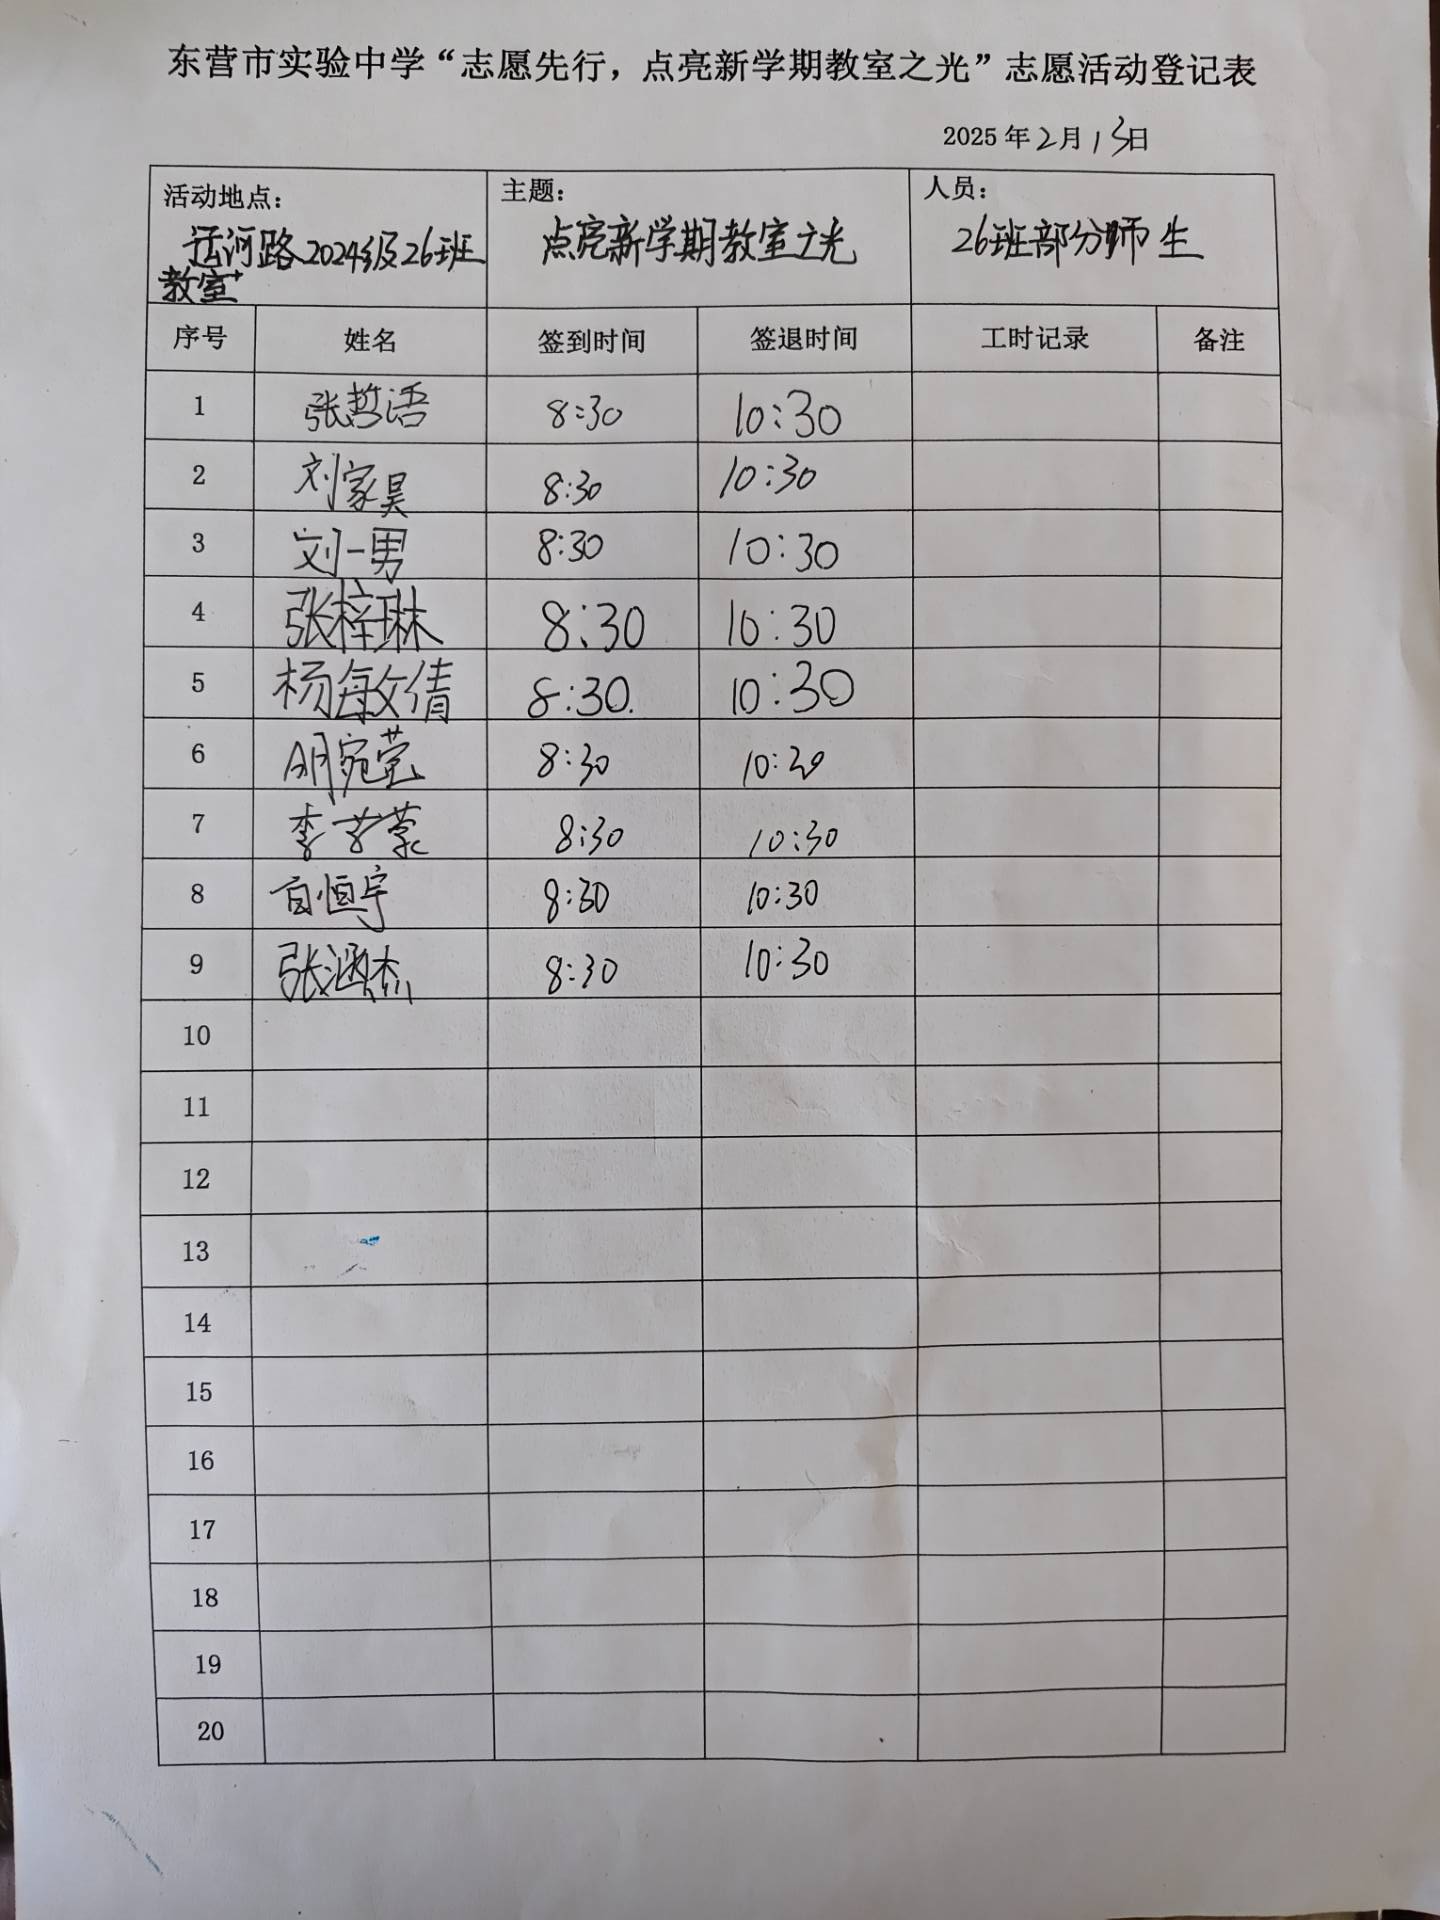 东营市实验中学“志愿先行，点亮新学期教室之光”志愿活动登记表
2025年2月13日
活动地点： 主题： 人员：
运河路2024级26班 点亮新学期教室之光 26班部分师生
教室
序号 姓名 签到时间 签退时间 工时记录 备注
1 张哲语 8:30 10:30
2 刘家昊 8:30 10:30
3 刘一男 8:30 10:30
4 张梓琳 8:30 10:30
5 杨敏倩 8:30. 10:30
6 明宛莹 8:30 10:30
7 李 8:30 10:30
8 恒宇 8:30 10:30
9 张涵杰 8:30 10:30
10
11
12
13
14
15
16
17
18
19
20